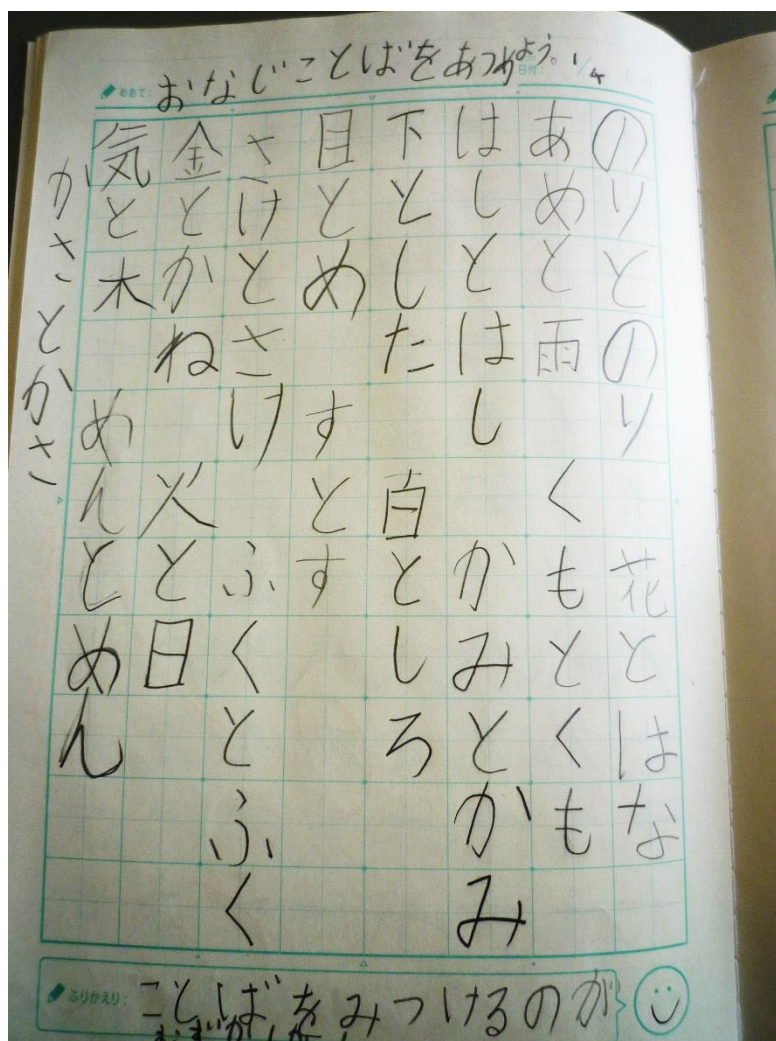 めあて: おなじことばをあつめよう。 日付: 1/4
のりとのり 花とはな
あめと雨 くもとくも
はしとはし かみとかみ
下とした 白としろ
目とめ すとす
さけとさけ ふくとふく
金とかね 火と日
気と木 めんとめん
かさとかさ
ふりかえり: ことばをみつけるのが